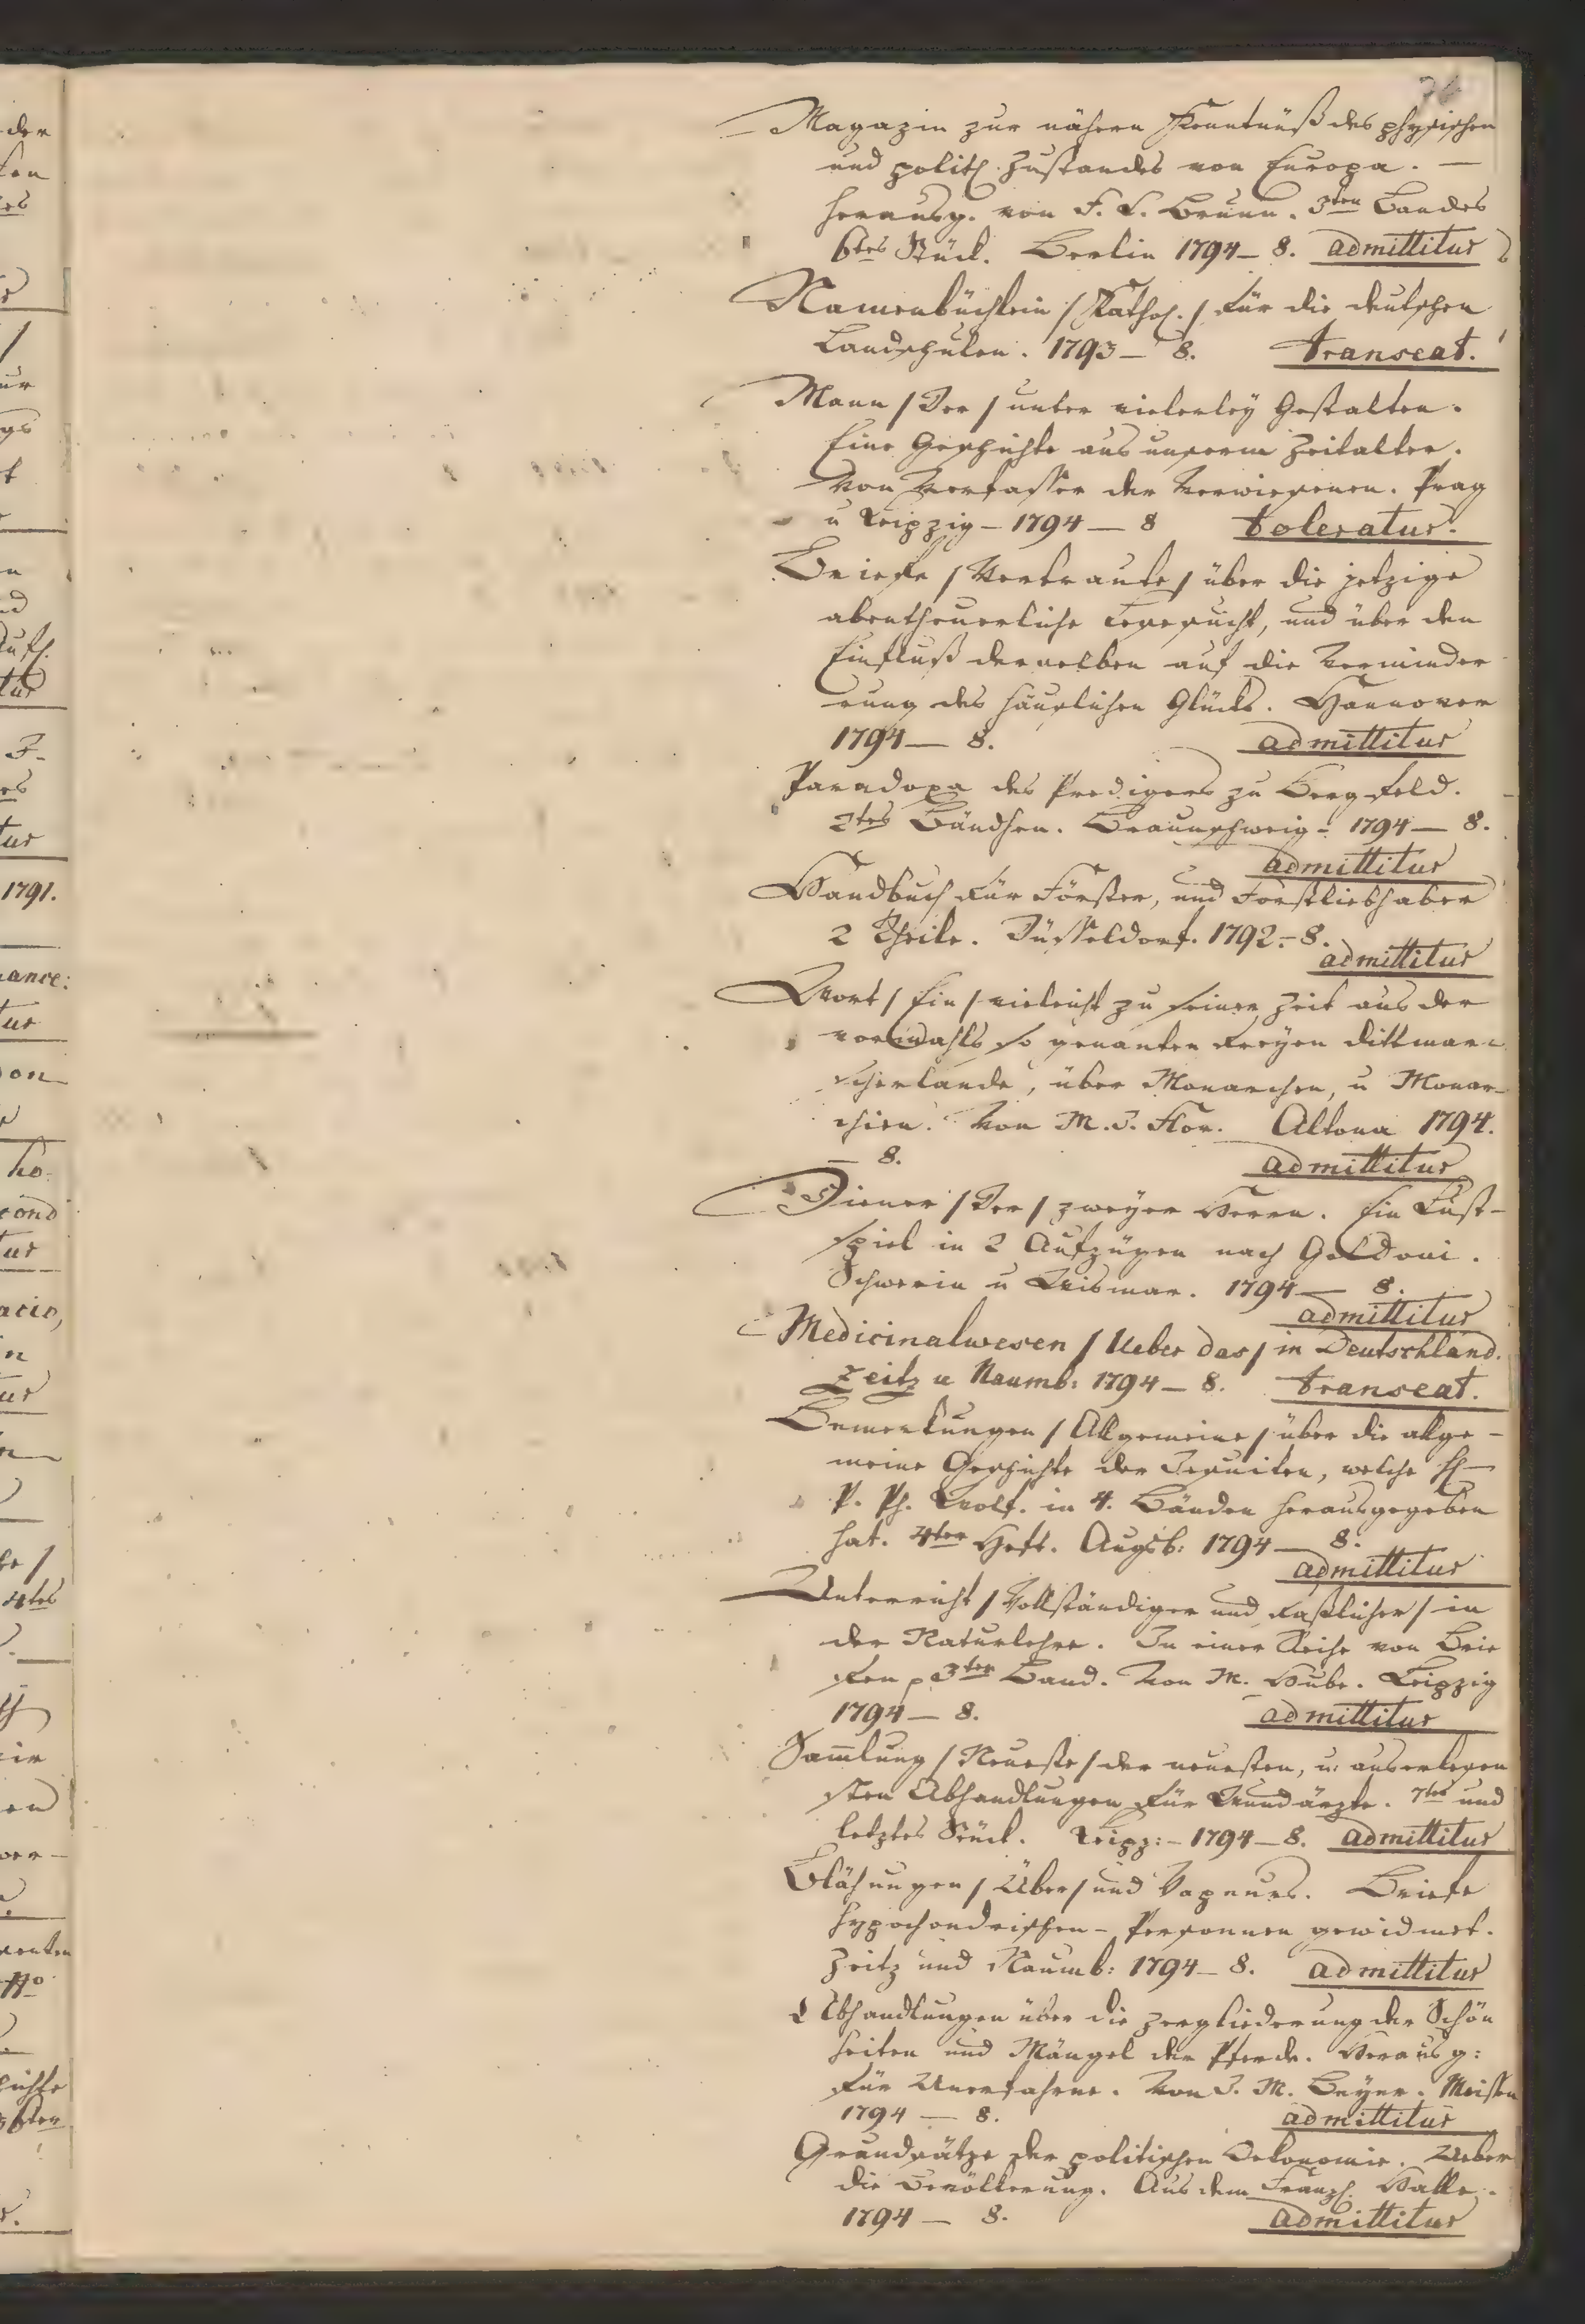 76
Magazin zur nähern Kenntnüß des physischen
und polit. Zustandes von Europa. —
herausg. von F. L. Brunn. 3ten Bandes
6tes Stück. Berlin 1794 — 8. admittitur
Namenbüchlein / Kathol. / für die deutschen
Landschulen. 1793 — 8. transeat.
Mann / Der / unter vielerley Gestalten.
Eine Geschichte aus unserm Zeitalter.
Von Verfasser der Verwiesenen. Prag
u Leipzig — 1794 — 8 toleratur.
Briefe / Vertraute / über die jetzige
abentheuerliche Lesesucht, und über den
Einfluß derselben auf die Verminder
rung des häuslichen Glücks. Hannover
1794 — 8. admittitur
Paradoxa des Predigers zu Bergfeld.
2tes Bändchen. Braunschweig — 1794 — 8.
admittitur
Handbuch für Förster, und Forstliebhaber
2 Theile. Düsseldorf. 1792. — 8.
admittitur
Wort / Ein / vieleicht zu seiner Zeit aus der
vormahls so genanten freyen dittmar-
scherlande, über Monarchen, u Monar-
chien. Von M. J. Flor. Altona 1794.
— 8. admittitur
Diener / Der / zweyer Herrn. Ein Lust-
spiel in 2 Aufzügen nach Goldoni.
Schwerin u Wismar. 1794 — 8.
admittitur
Medicinalwesen / Ueber das / in Deutschland.
Zeitz u Naumb: 1794 — 8. transeat.
Bemerkungen / Allgemeine / über die allge-
meine Geschichte der Jesuiten, welche H
P. Ph. Wolf. in 4. Bänden herausgegeben
hat. 4ter Heft. Augsb: 1794 — 8.
admittitur
Unterricht / Vollständiger und faßlicher / in
der Naturlehre. In einer Reihe von Brie
fen 3ter Band. Von M. Hube. Leipzig
1794 — 8. admittitur
Sam̅lung / Neueste / der neuesten, u: auserlesen
sten Abhandlungen für Wundärzte. 7tes und
letztes Stück. Leipz: — 1794 — 8. admittitur
Blähungen / Über / und Vapeurs. Briefe
hypochondrischen — Personnen gewidmet.
Zeitz und Naumb: 1794 — 8. admittitur
Abhandlungen über die Zergliederung der Schön
heiten und Mängel der Pferde. Herausg:
für Unerfahrne. Von J. M. Beyer. Meißen
1794 — 8. admittitur
Grundsätze der politischen Oekonomie. Ueber
die Bevölkerung. Aus dem Franz. Halle.
1794 — 8. admittitur